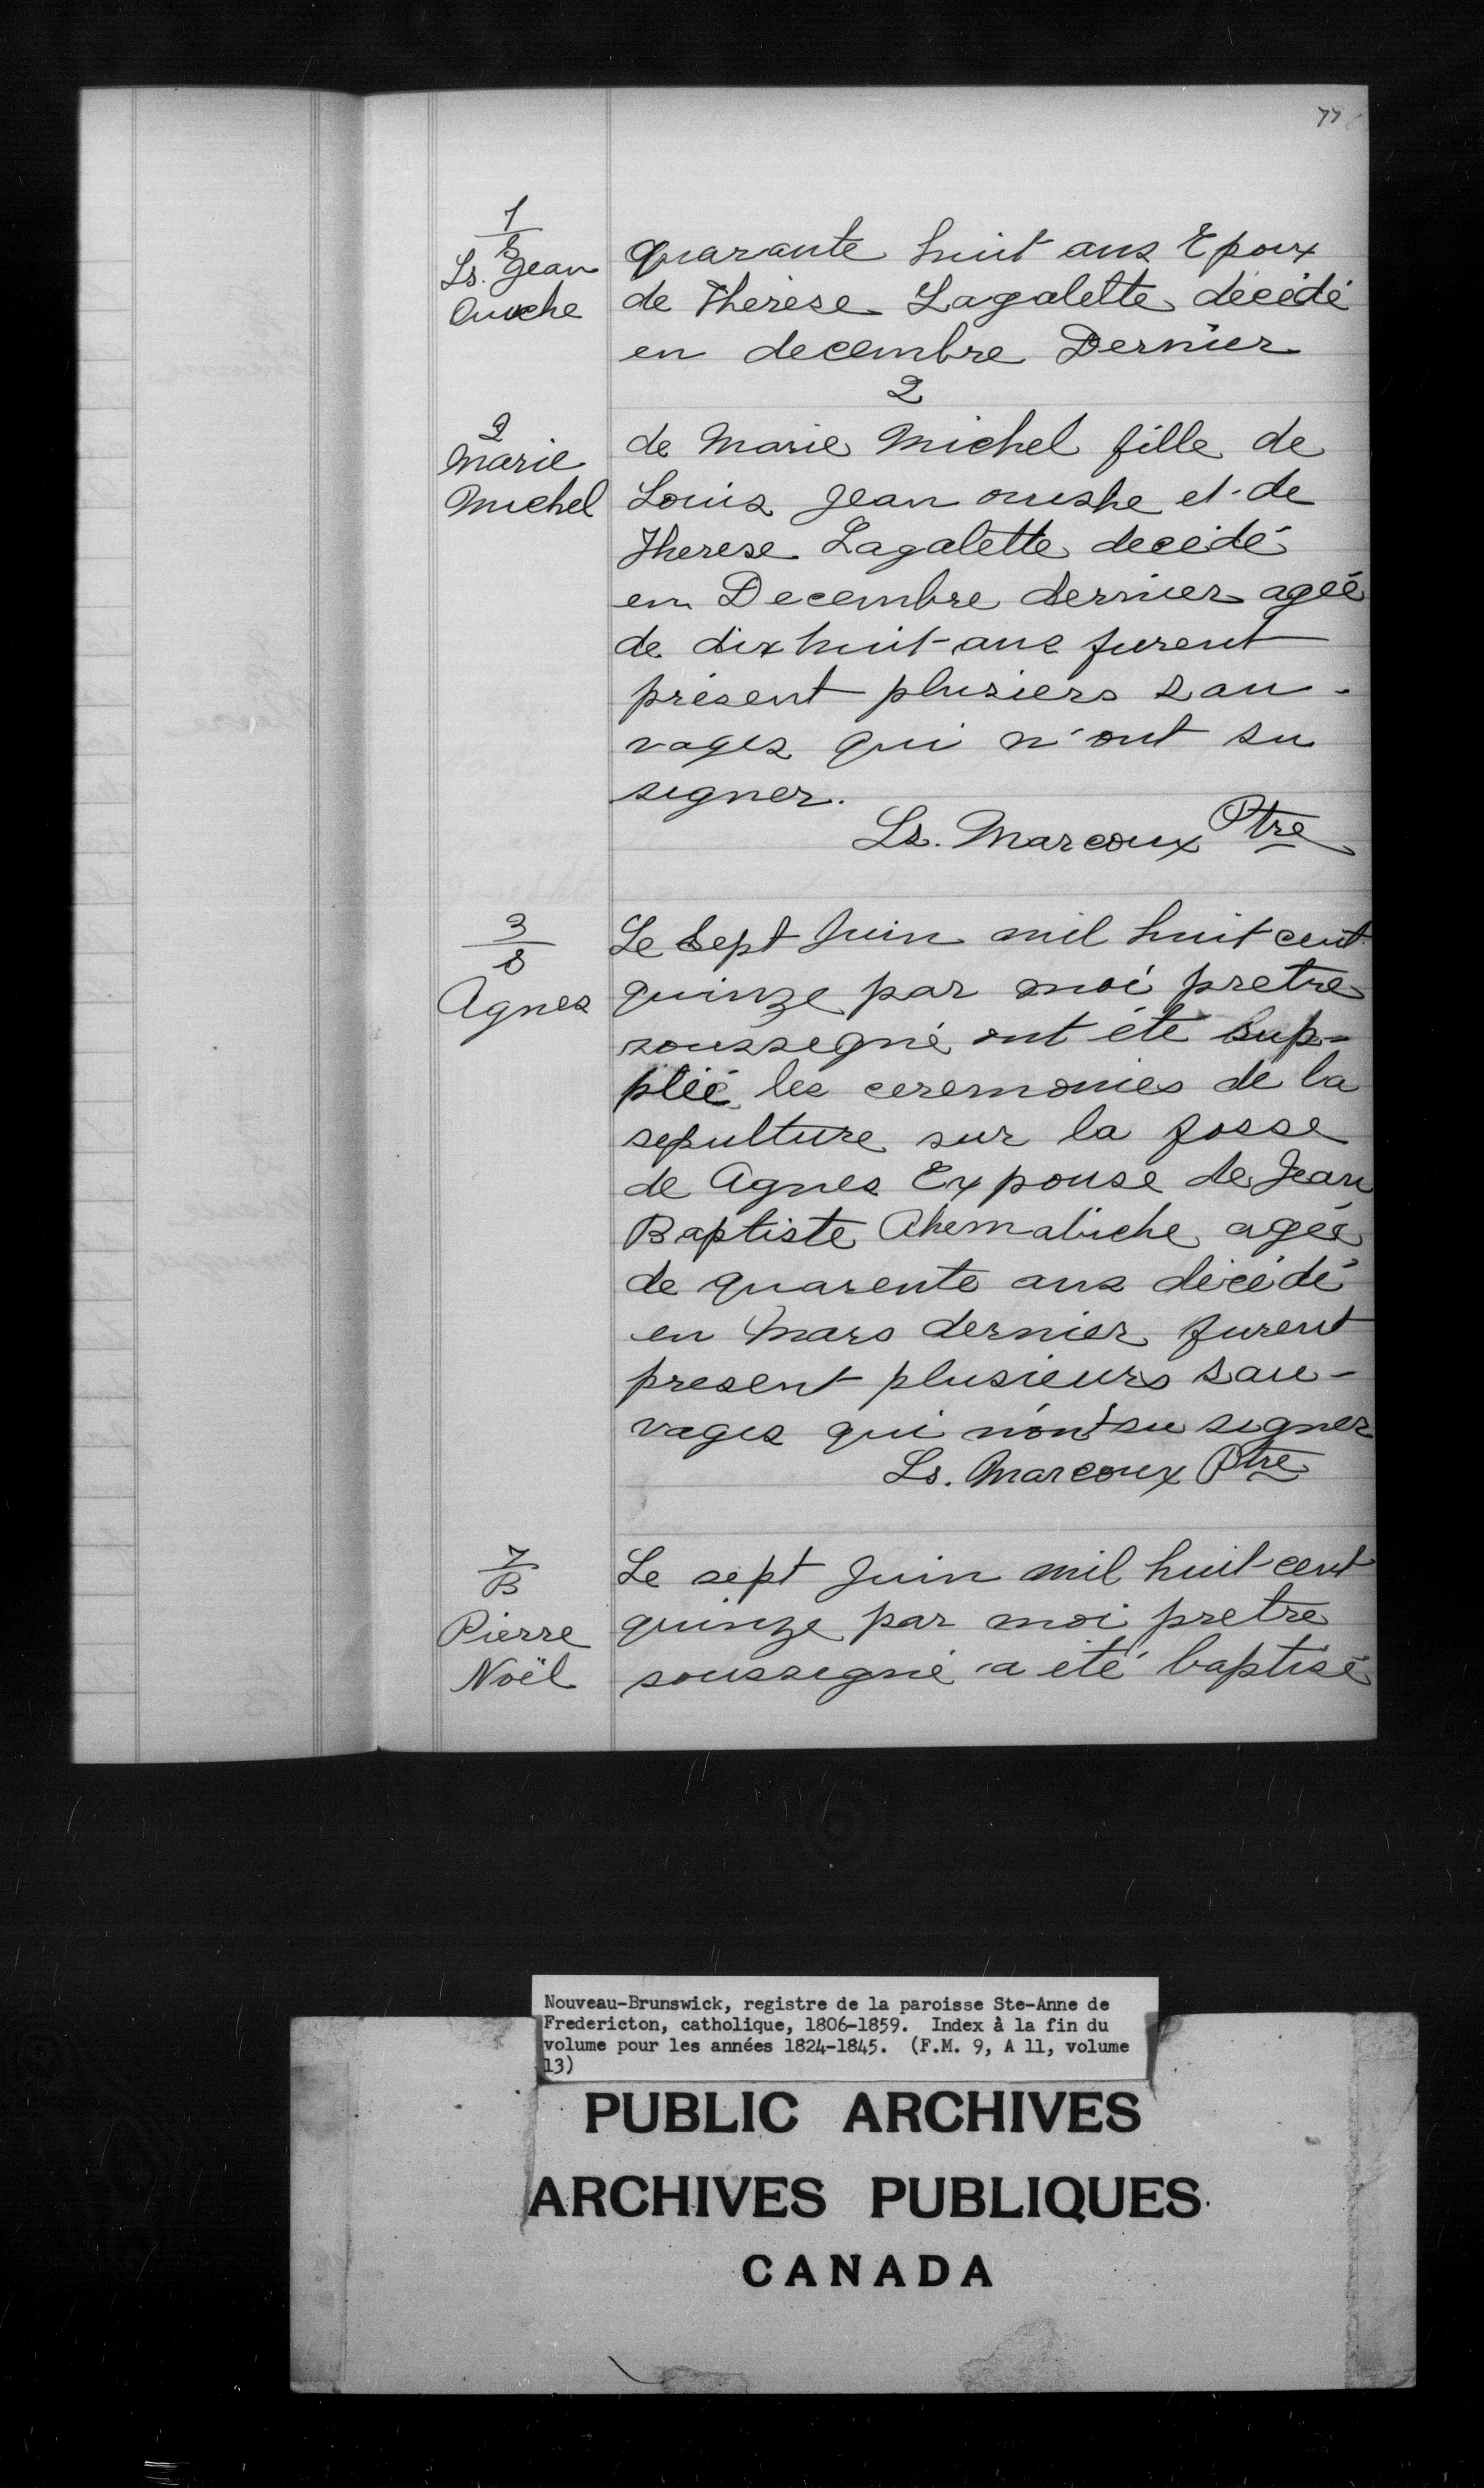 77
1
S
Ls. Jean
Ouiche
quarante huit ans Epoux
de Therese Lagalette décédé
en decembre Dernier
2
2
Marie
Michel
de Marie Michel fille de
Louis Jean ouishe et de
Therese Lagalette decédé
en Decembre dernier agée
de dix huit ans furent
présent plusiers sau-
vages qui n'ont su
signer.
Ls. Marcoux Ptre
3
S
Agnes
Le Sept Juin mil huit cent
quinze par moi pretre
soussigné ont été sup-
pliée les ceremonies de la
sepulture sur la fosse
de Agnes Expouse de Jean
Baptiste agée
de quarente ans décédé
en Mars dernier furent
present plusieurs sau-
vages qui n'ont su signer
Ls. Marcoux Ptre
7
B
Pierre
Noël
Le sept Juin mil huit cent
quinze par moi pretre
soussigné a été baptisé
Nouveau-Brunswick, registre de la paroisse Ste-Anne de
Fredericton, catholique, 1806-1859. Index à la fin du
volume pour les années 1824-1845. (F.M. 9, A 11, volume
13)
PUBLIC ARCHIVES
ARCHIVES PUBLIQUES
CANADA